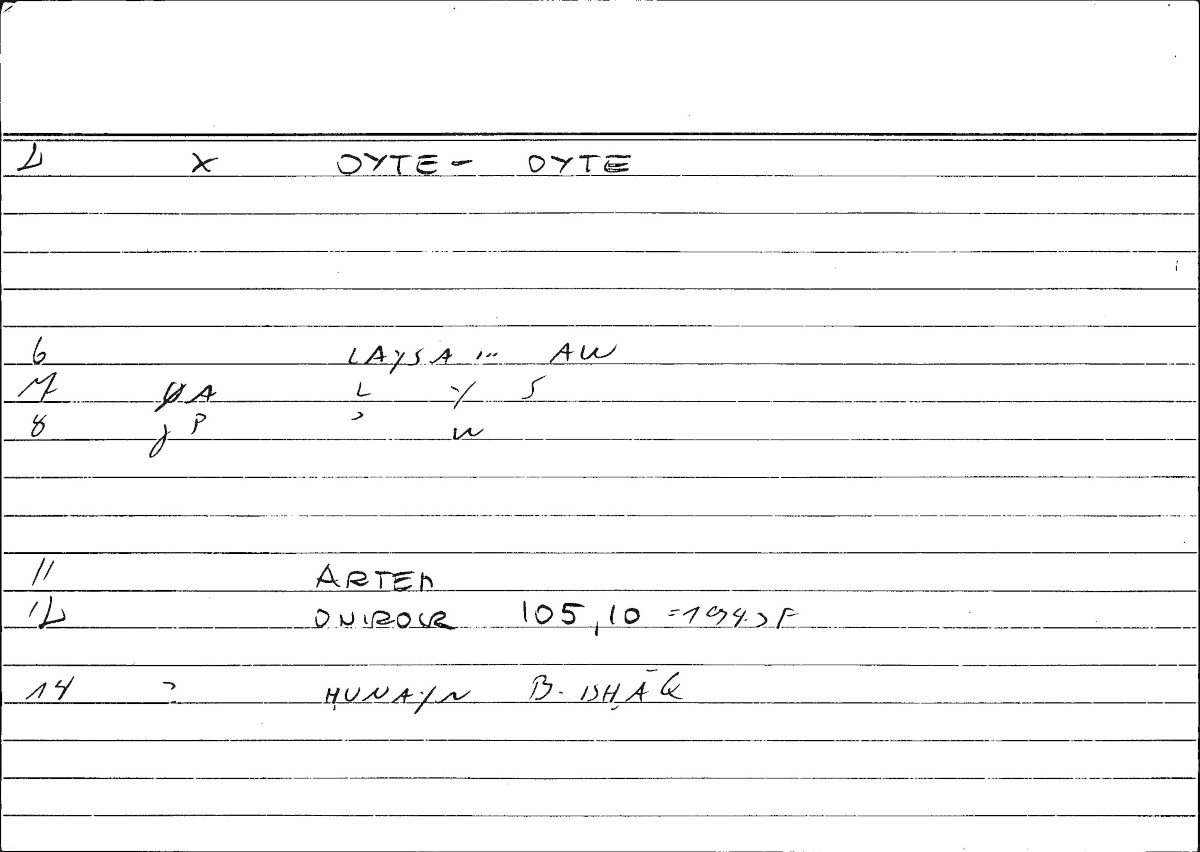 2 X OYTE - OYTE
6 LAYSA ... AW
7 ØA L Y S
8 J P ɔ W
11 ARTEM
12 ONIROCR 105,10 =194.
14 ? ḤUNAYN B. ISḤĀQ